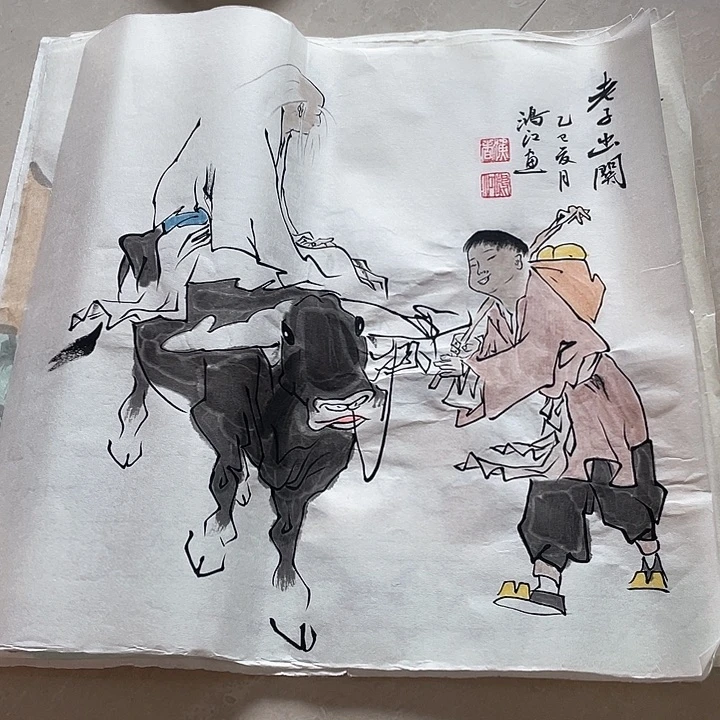 老子出關
乙巳夏月
鴻江画